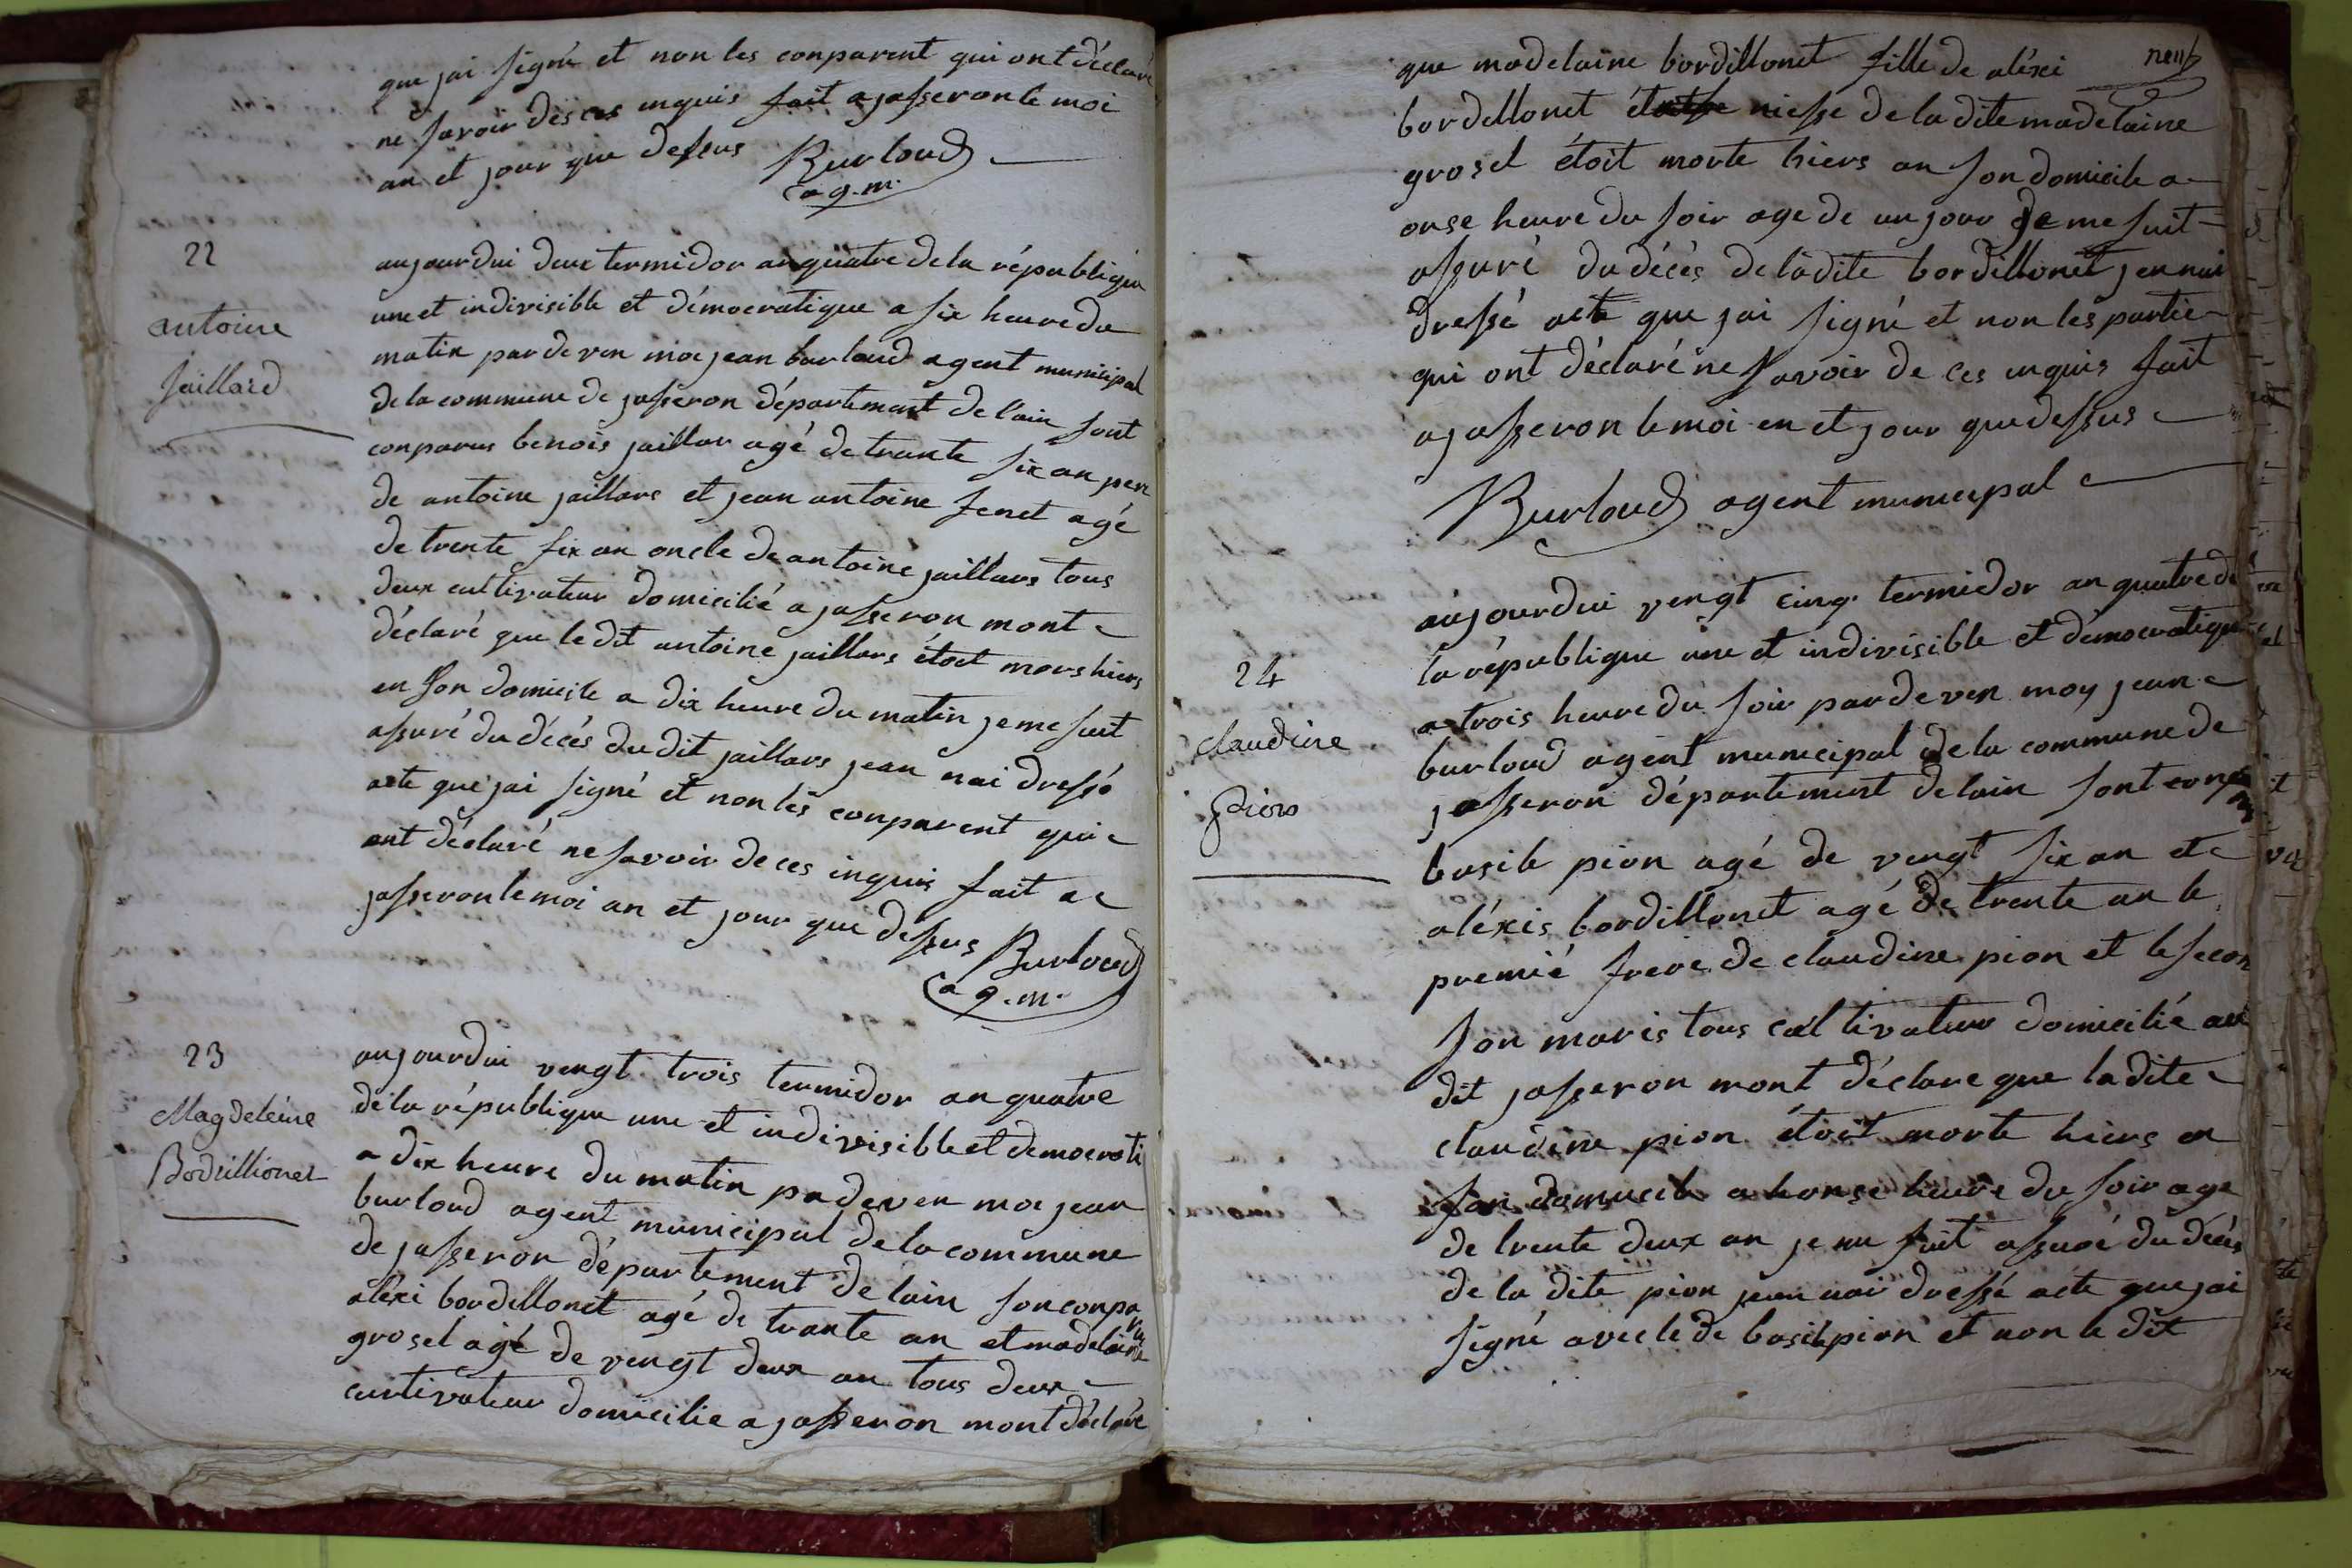 que jai signé et non les conparent qui ont déclaré
ne savoir de ces inquis fait a jasseron le moi
an et jour que dessus Burloud
ag.m.
22
antoine
Jaillard
aujourdui deux termidor an quatre de la république
une et indivisible et démocratique a six heure du
matin par de ven moi jean burloud agent municipal
de la commune de jasseron département de l'ain sont
conparus benois jaillar agé de trante six an pere
de antoine jaillars et jean antoine fenet agé
de trente six an oncle de antoine jaillars tous
deux cultivateur domicilié a jasseron mont
déclaré que le dit antoine jaillars étoit mors hiers
en son domicile a dix heure du matin je me suit
assuré du décès du dit jaillars jean nai dressé
acte que jai signé et non les conparent qui
ont déclaré ne savoir de ces inquis fait a
jasseron le moi an et jour que dessus Burloud
ag.m.
23
Magdeleine
Bordillionet
aujourdui vengt trois termidor an quatre
de la république une et indivisible et democrati
a dix heure du matin padeven moi jean
burloud agent municipal de la commune
de jasseron département de lain son conparu
aléxi bordillonet agé de trante an et madelaine
grosel agé de vengt deux an tous deux
curtivateur domicilie a jasseron mont déclaré
neuf
que madelaine bordillonet fille de aléxi
bordellonet niesse de la dite madelaine
grosel étoit morte hiers an son domicile a
onse heure du soir age de un jour je me suit
assuré du décès de ladite bordillonet jennai
dressé acte que jai signé et non les partie
qui ont déclaré ne savoir de ces inquis fait
a jasseron le moi en et jour que dessus
Burloud agent municipal
24
claudine
pion
aujourdui vengt cinq termidor an quatre de
la république une et indivisible et démocratique
a trois heure du soir par de ven moy jean
burloud agent municipal de la commune de
jasseron département delain sont conparu
basile pion agé de vengt six an et
aléxis bordillonet agé de trente an le
premié frere de claudine pion et le secon
son maris tous cultivateur domicilié au
dit jasseron mont déclare que ladite
claudine pion étoit morte hiers en
son domicile a honse heure du soir age
de trente deux an je me suit assuré du décès
de la dite pion jean nai dressé acte que jai
signé avec le de basile pion et non le dit